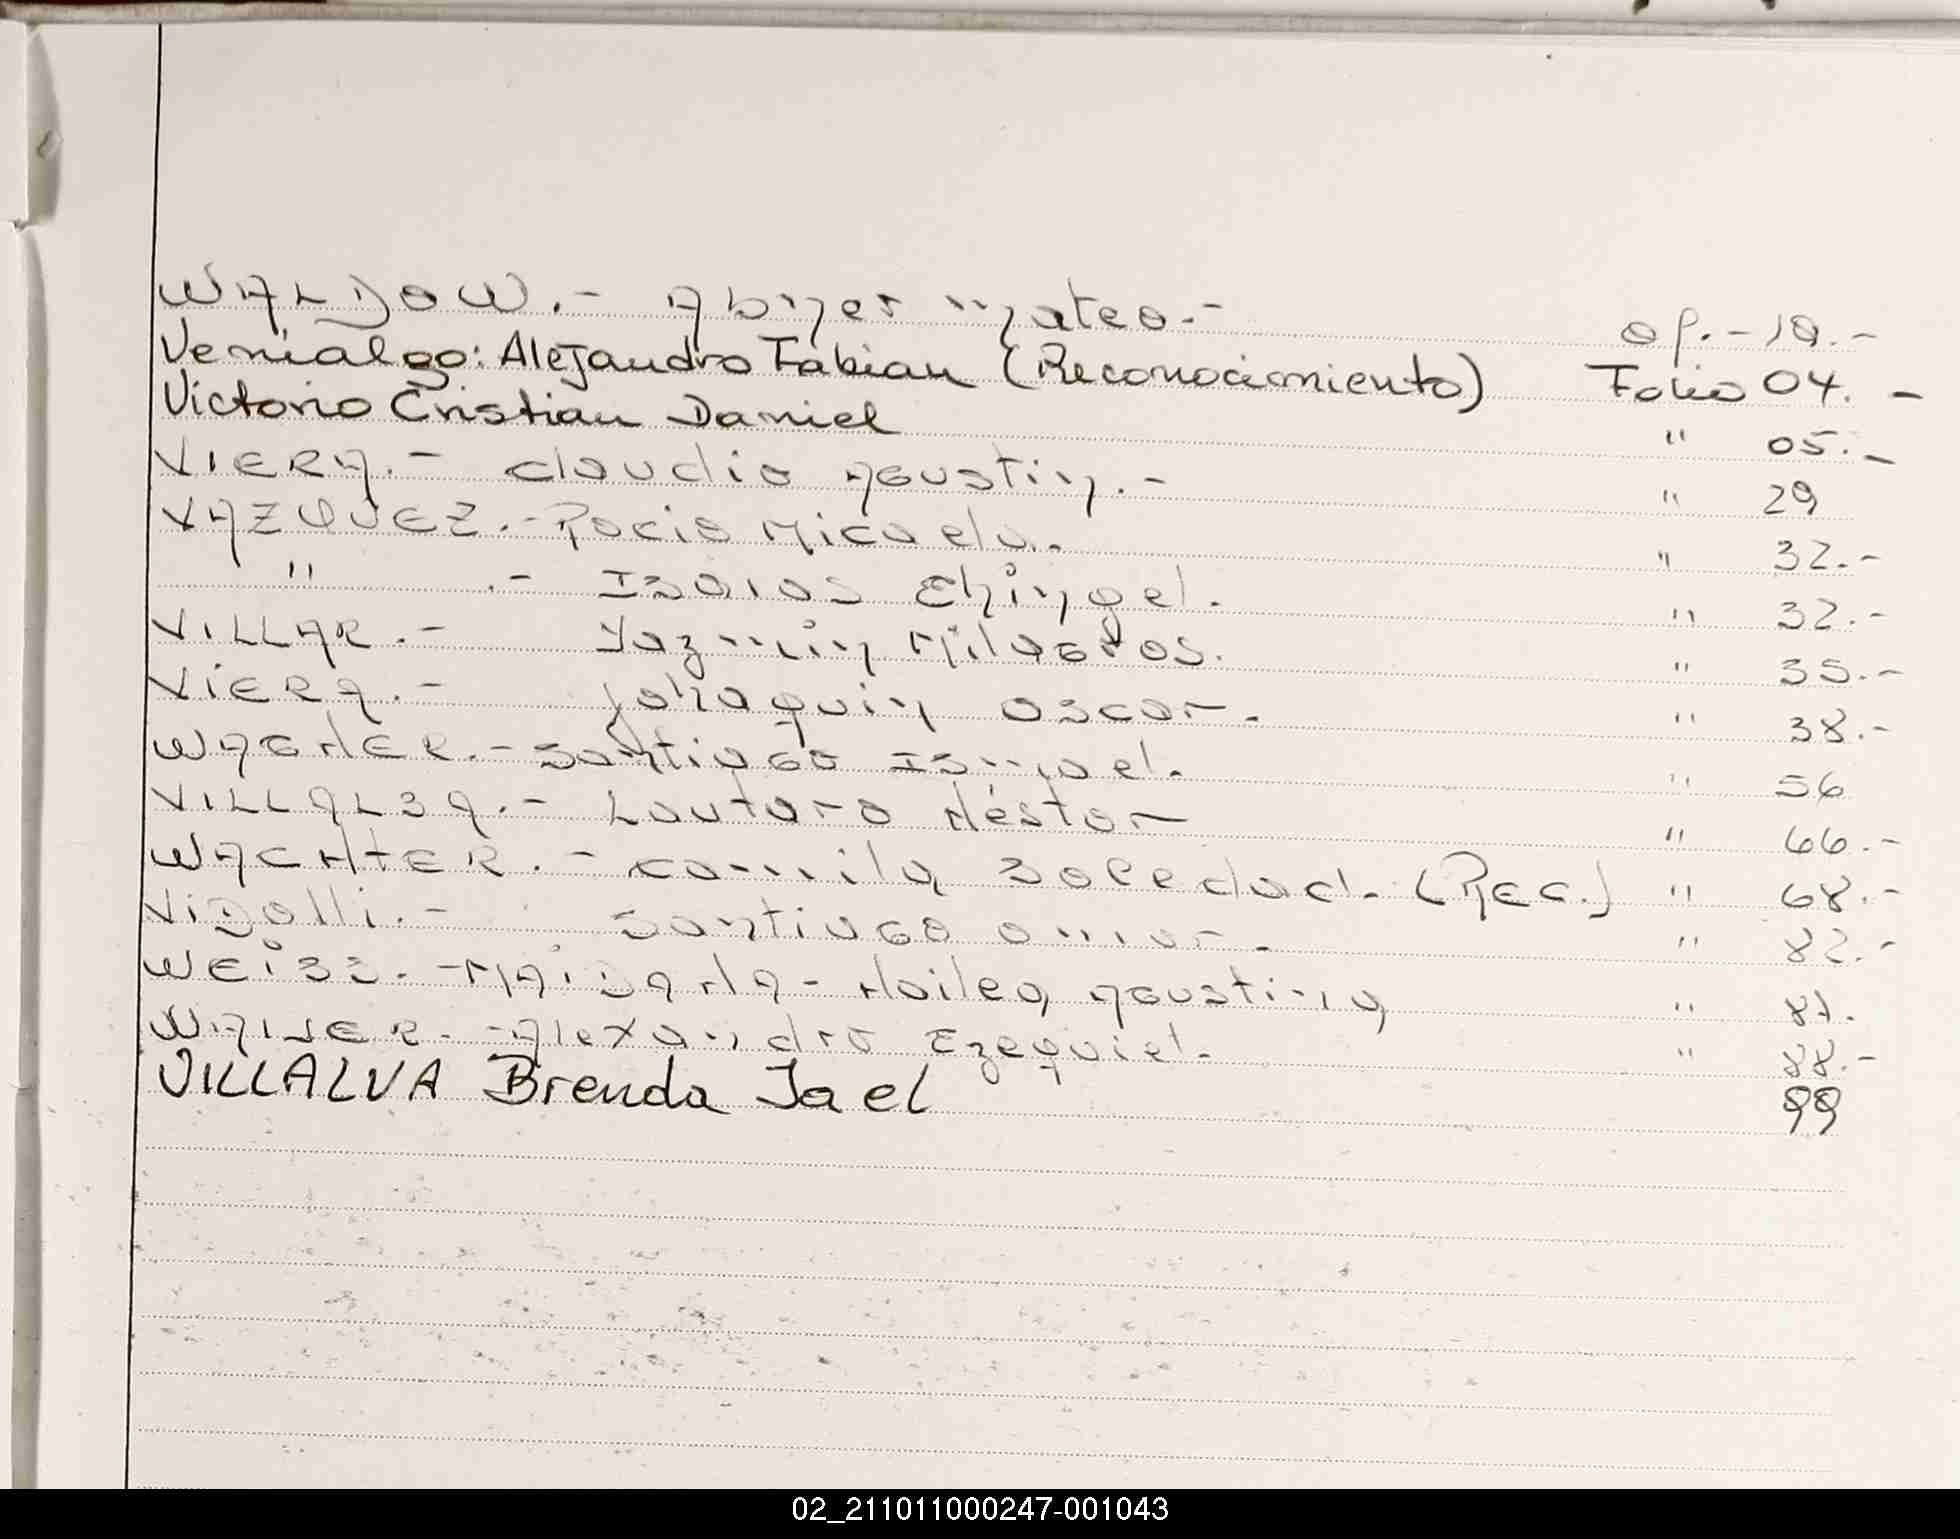 WALDOW.- Abner Mateo.- of.-19.-
Venialgo: Alejandro Fabian (Reconocimiento) Folio 04.-
Victorio Cristian Daniel " 05.-
VIERA.- claudio Agustin.- " 29
VAZQUEZ.- Rocio Micaela.- " 32.-
" .- Isaias Ehingel. " 32.-
VILLAR.- Yazmin Milagros. " 35.-
ViERA.- Johaquin oscar.- " 38.-
WAGNER.- Santiago Ismael. " 56
VILLALBA.- Lautaro Néstor " 66.-
WACHTER.- camila Soledad.- (REC.) " 68.-
ViDolli.- Santiago omar.- " 82.-
WEiSS.- MAiDANA- Noilea Agustina " 87.
WAINER.- Alexandro Ezequiel.- " 88.-
VILLALVA Brenda Jael 99
02_211011000247-001043